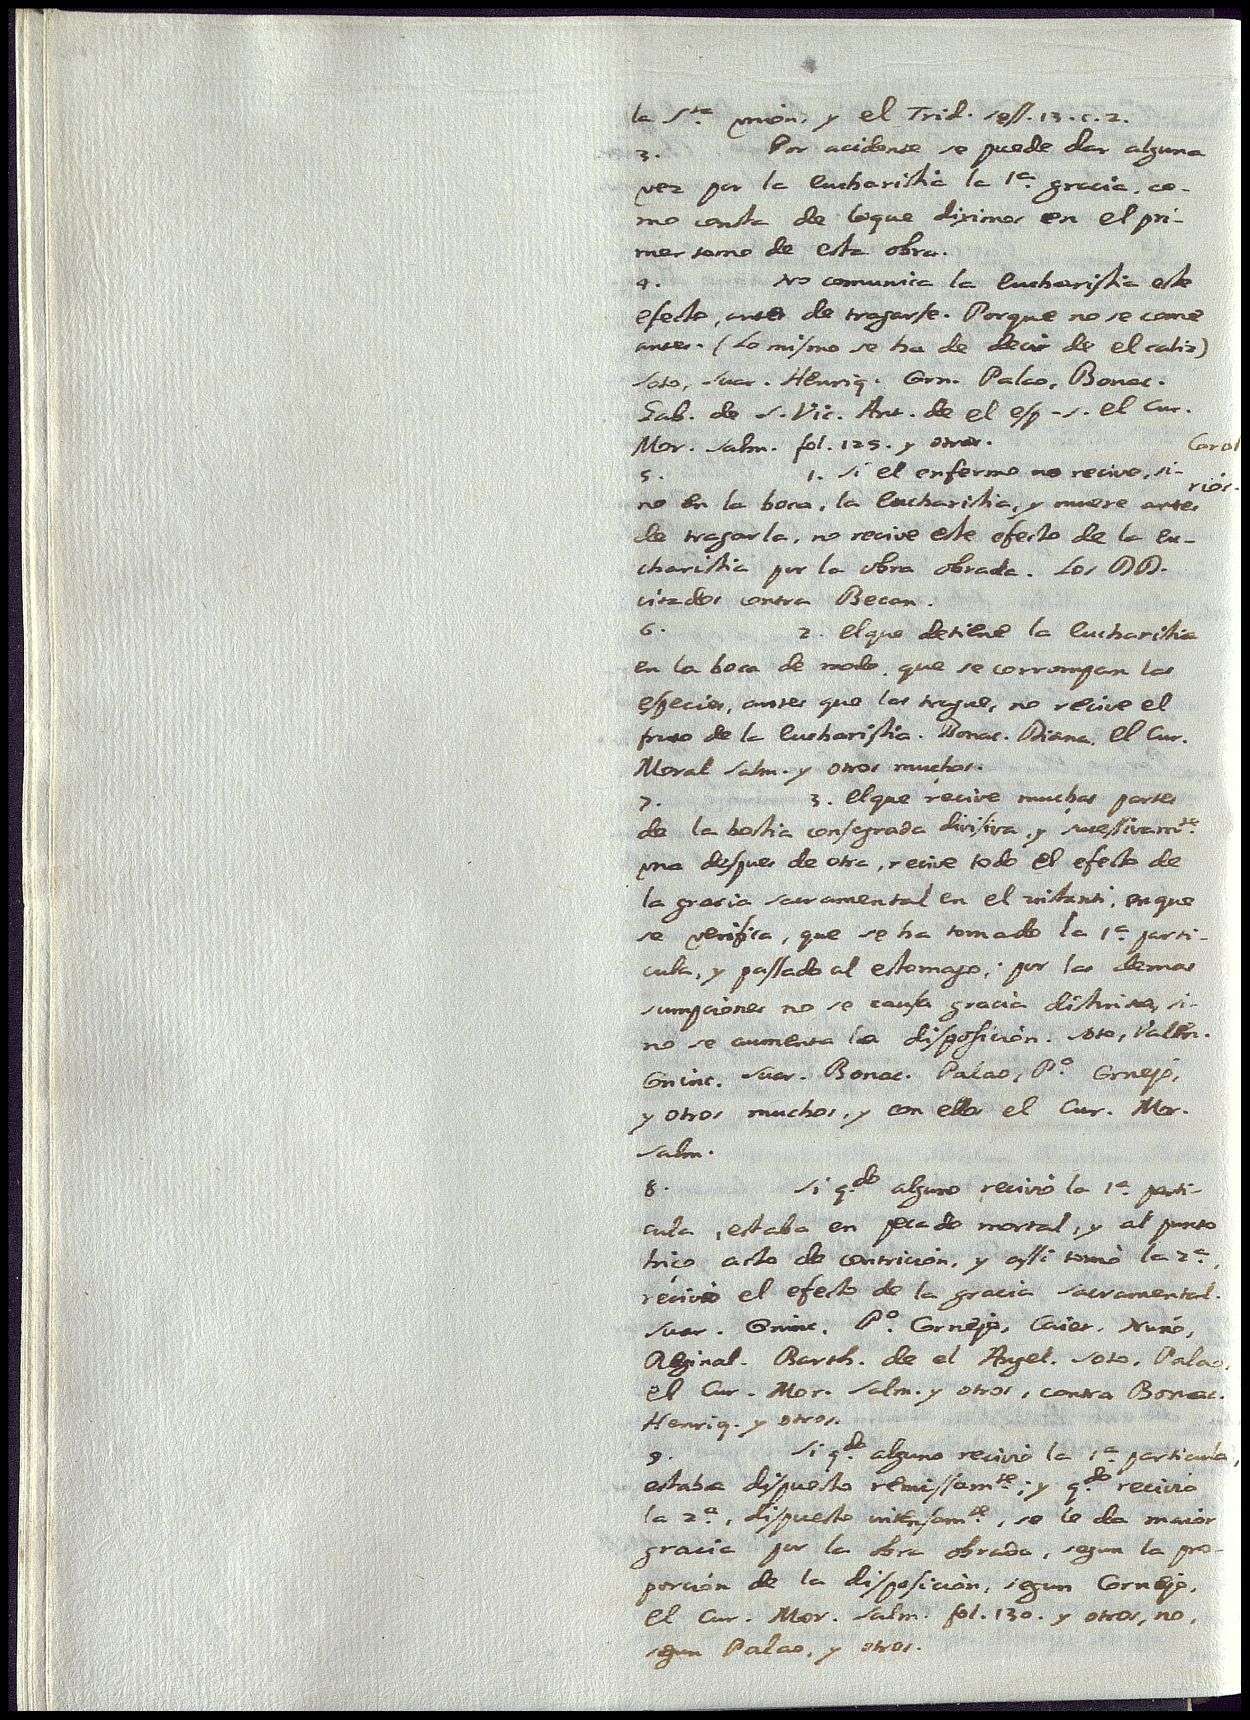 la S.ta union, y el Trid. sess. 13. c. 2.
3. Por acidente se puede dar alguna
vez por la eucharistia la 1.ª gracia, co-
mo consta de loque diximos en el pri-
mer tomo de esta obra.
4. No comunica la Eucharistia este
efecto, antes de tragarse. Porque no se come
antes. (Lo mismo se ha de decir de el caliz)
Soto, Suar. Henriq. Con. Palao, Bonac.
Gab. de S. Vic. Ant. de el esp-s. el Cur.
Mor. Salm. fol. 125. y otros.
Corol
rios.
5. 1. Si el enfermo no recive, si-
no en la boca, la Eucharistia, y muere antes
de tragarla, no recive este efecto de la Eu-
charistia por la obra obrada. Los DD.
citados contra Becan.
6. 2. Elque detiene la Eucharistia
en la boca de modo, que se corrompan las
especies, antes que las trague, no recive el
fruto de la Eucharistia. Bonac. Diana. El Cur.
Moral Salm. y otros muchos.
7. 3. Elque recive muchas partes
de la hostia consagrada divisiva, y sucessivam.te
una despues de otra, recive todo el efecto de
la gracia sacramental en el instanti, enque
se verifica, que se ha tomado la 1.ª parti-
cula, y passado al estomago; por las demas
sumpciones no se causa gracia distinta, si-
no se aumenta la disposicion. Soto, Valen.
Coninc. Suar. Bonac. Palao, P.º Cornejo,
y otros muchos, y con ellos el Cur. Mor.
Salm.
8. Si q.do alguno recivio la 1.ª parti-
cula, estaba en pecado mortal, y al punto
hico acto de contricion, y assi tomó la 2.ª,
recivio el efecto de la gracia sacramental.
Suar. Coninc. P.º Cornejo, Caiet. Nuño,
Reginal. Barth. de el Angel. Soto, Palao,
el Cur. Mor. Salm. y otros, contra Bonac.
Henriq. y otros.
9. Si q.do alguno recivio la 1.ª particula,
estaba dispuesto remissam.te; y q.do recivio
la 2.ª, dispuesto intensam.te, se le da maior
gracia por la obra obrada, segun la pro-
porcion de la disposicion, segun Cornejo,
el Cur. Mor. Salm. fol. 130. y otros, no,
segun Palao, y otros.